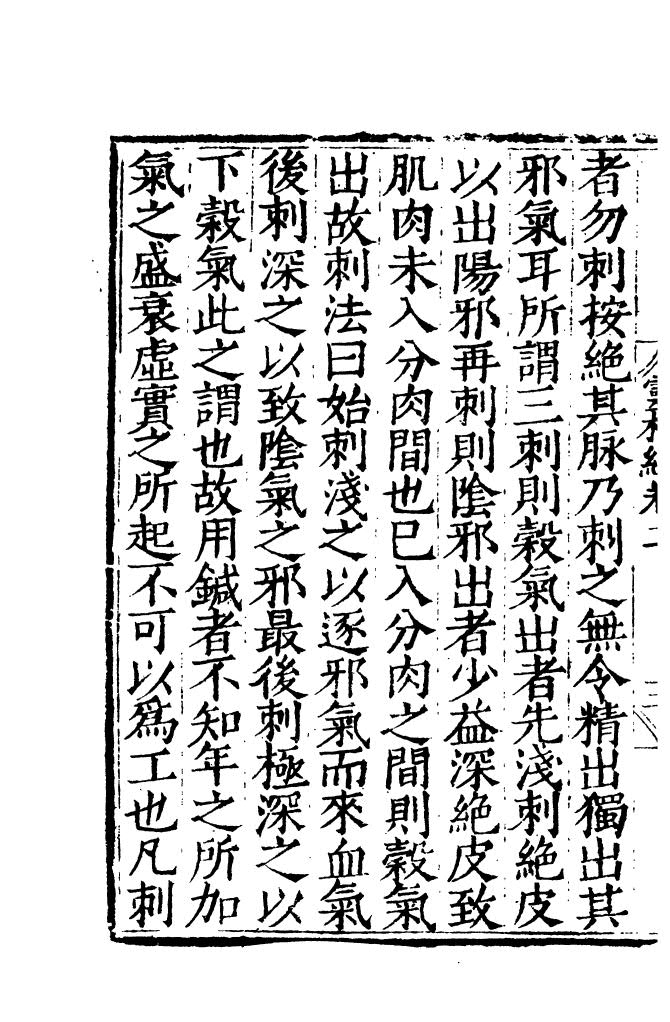 者勿刺按絶其脉乃刺之無令精出獨出其
邪氣耳所謂三刺則穀氣出者先淺刺絶皮
以出陽邪再刺則陰邪出者少益深絶皮致
肌肉未入分肉間也已入分肉之間則穀氣
出故刺法曰始刺淺之以逐邪氣而來血氣
後刺深之以致陰氣之邪最後刺極深之以
下穀氣此之謂也故用鍼者不知年之所加
氣之盛衰虛實之所起不可以爲工也凡刺